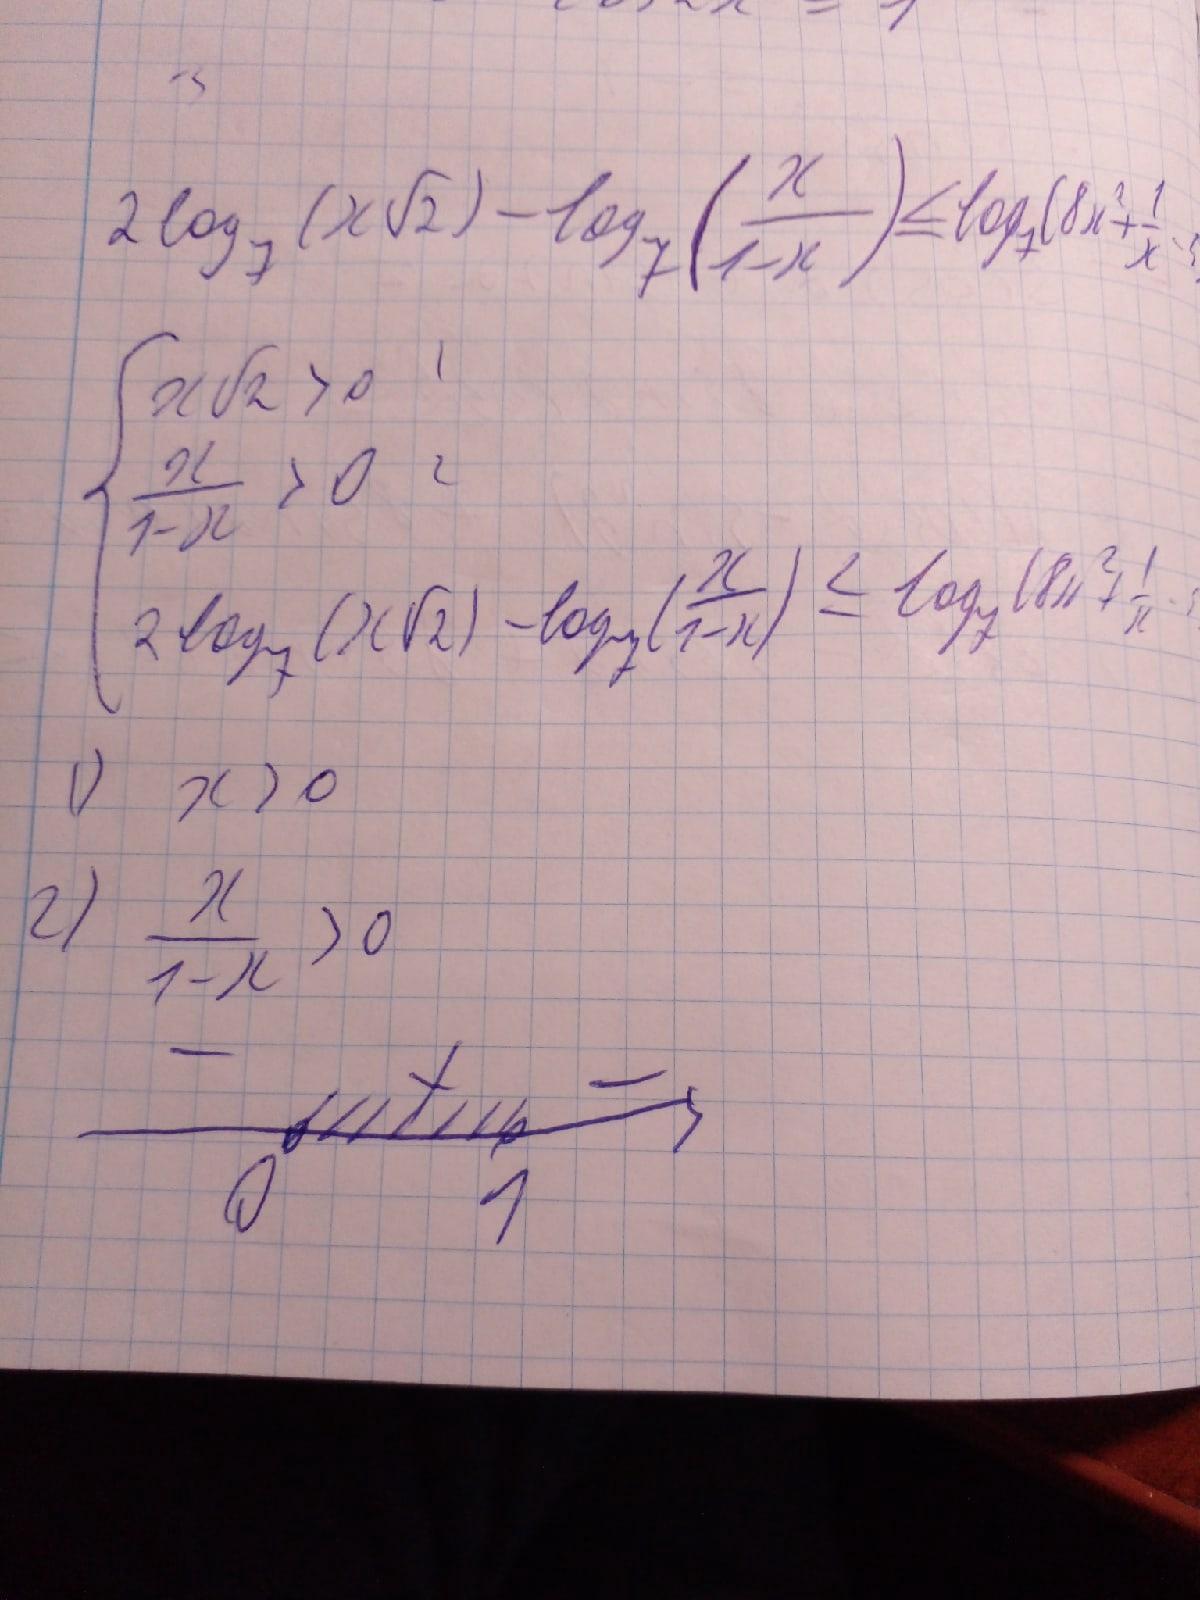 cos2x = 1
2log₇(x√2) - log₇(x/(1-x)) ≤ log₇(8x²+1/x
x√2 > 0 1
x/(1-x) > 0 2
2log₇(x√2) - log₇(x/(1-x)) ≤ log₇(8x²+1/x
1) x > 0
2) x/(1-x) > 0
- + -
0 1